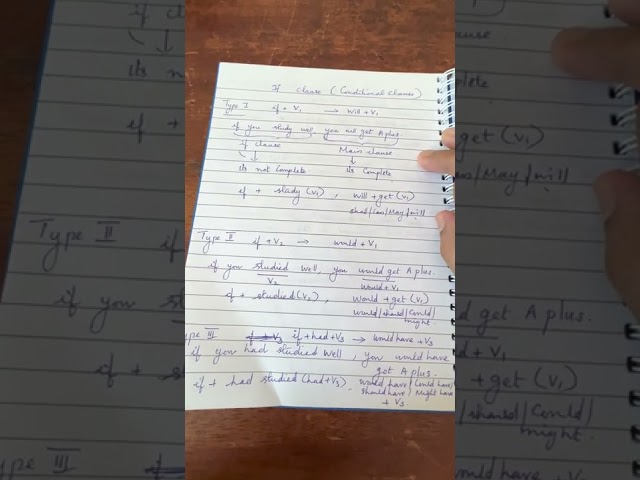 If clause (Conditional clause)
Type I if + V1 → will + V1
if you study well, you will get A plus.
if clause Main clause
its not Complete its Complete
if + study (V1), will + get (V1)
shall/can/May/will
Type II if + V2 → would + V1
if you studied well, you would get A plus.
V2 would + V1
if + studied (V2), Would + get (V1)
would/should/Could/
might.
ype III if + V3 if + had + V3 → would have + V3
if you had studied well, you would have
got A plus.
if + had studied (had + V3), would have/Could have/
should have/Might have
+ V3